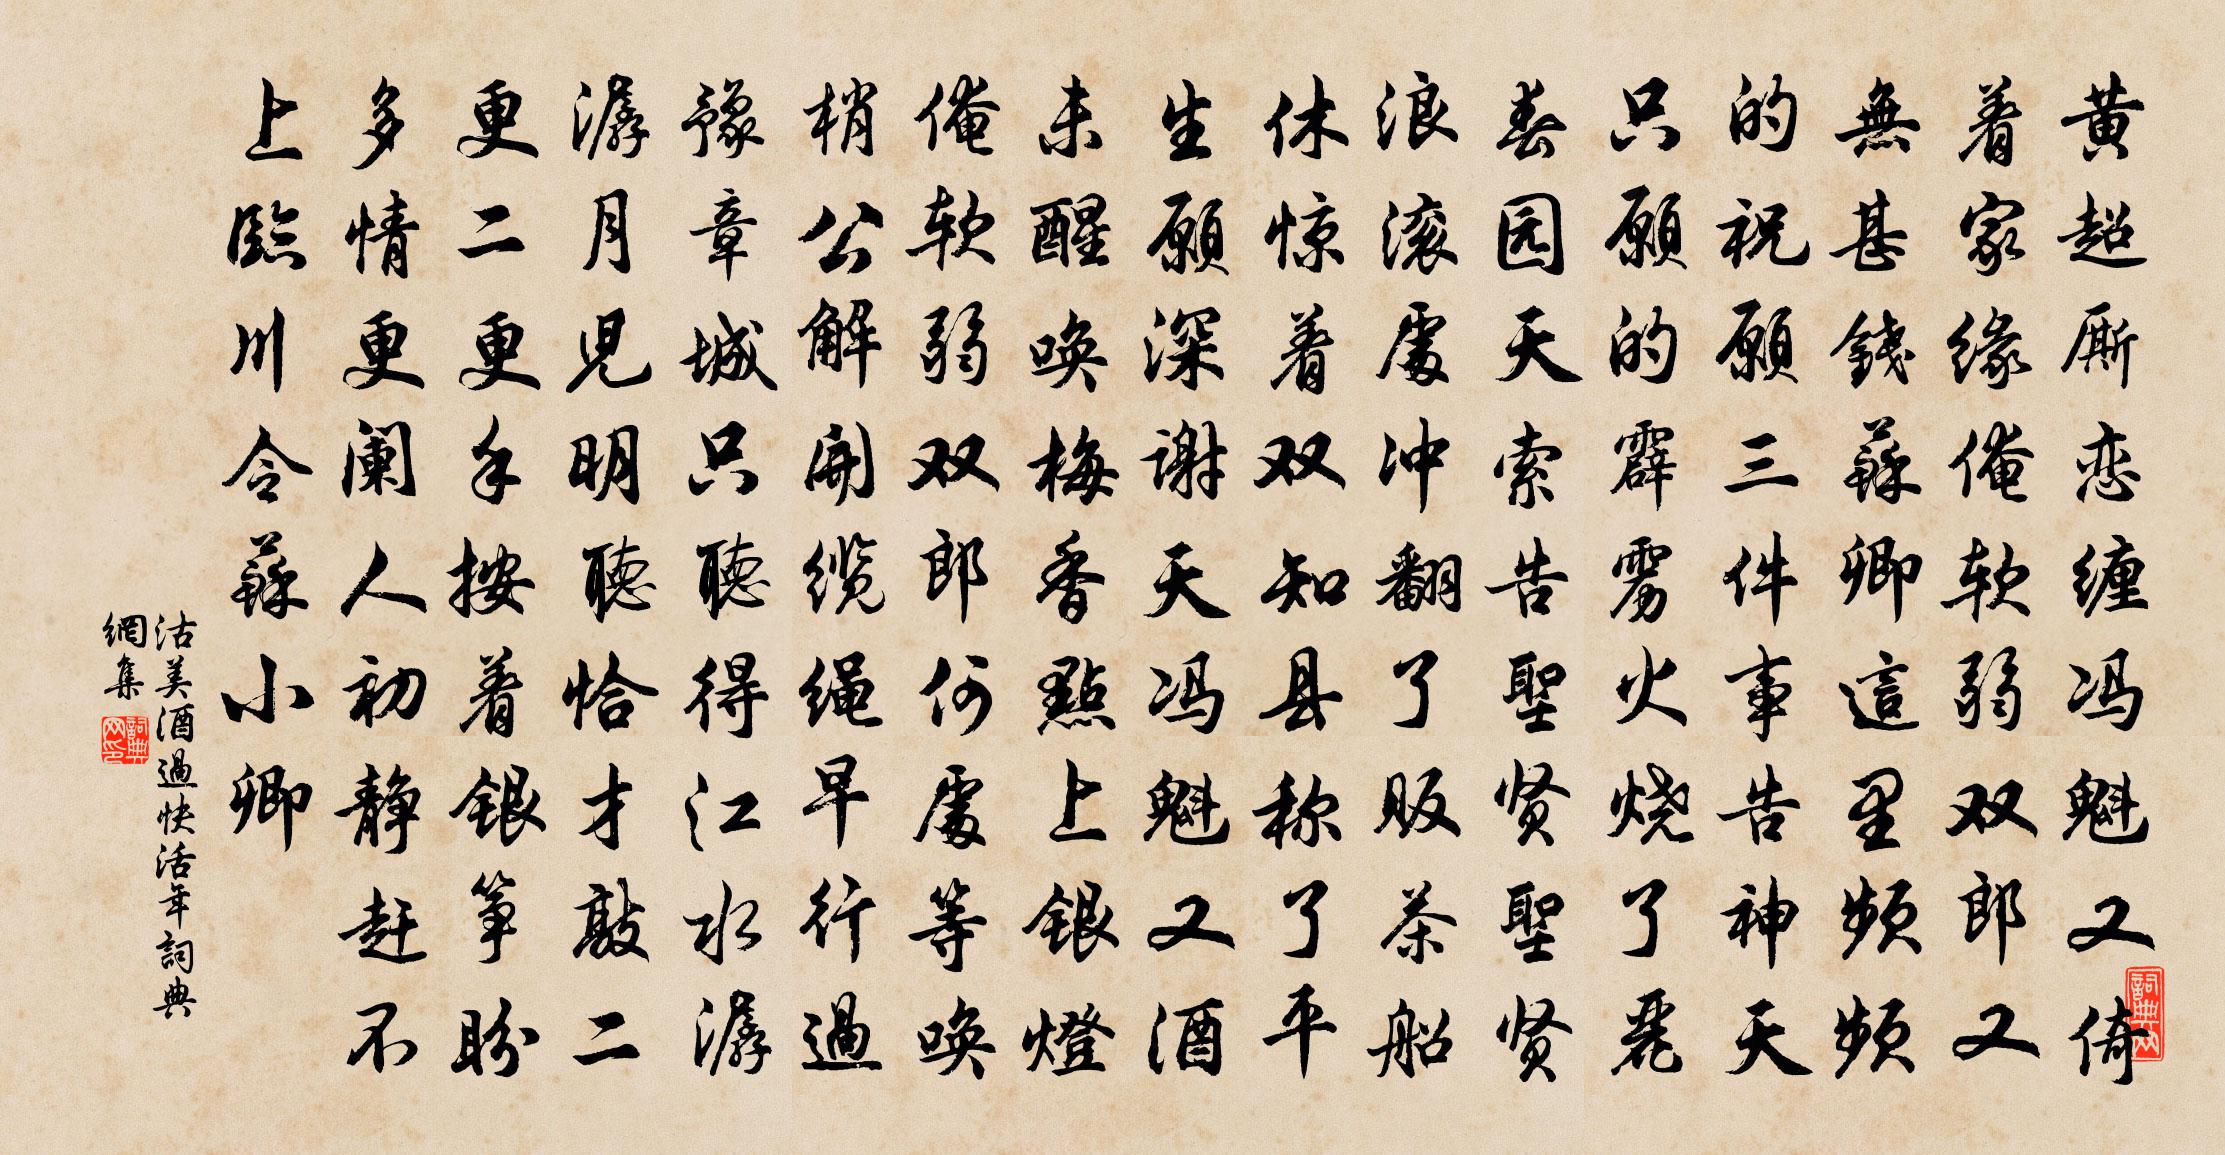 黄超厮恋缠冯魁又倚
着家缘俺软弱双郎又
無甚錢蘇卿這里頻頻
的祝願三件事告神天
只願的霹雳火烧了麗
春园天索告聖贤聖贤
浪滚處冲翻了贩茶船
休惊着双知县称了平
生願深谢天冯魁又酒
未醒唤梅香點上銀燈
俺软弱双郎何處等唤
梢公解開缆绳早行過
豫章城只聽得江水潺
潺月児明聽恰才敲二
更二更手按着銀筝盼
多情更阑人初静赶不
上臨川令蘇小卿
沽美酒過快活年詞典
網集
詞典网
詞典网印